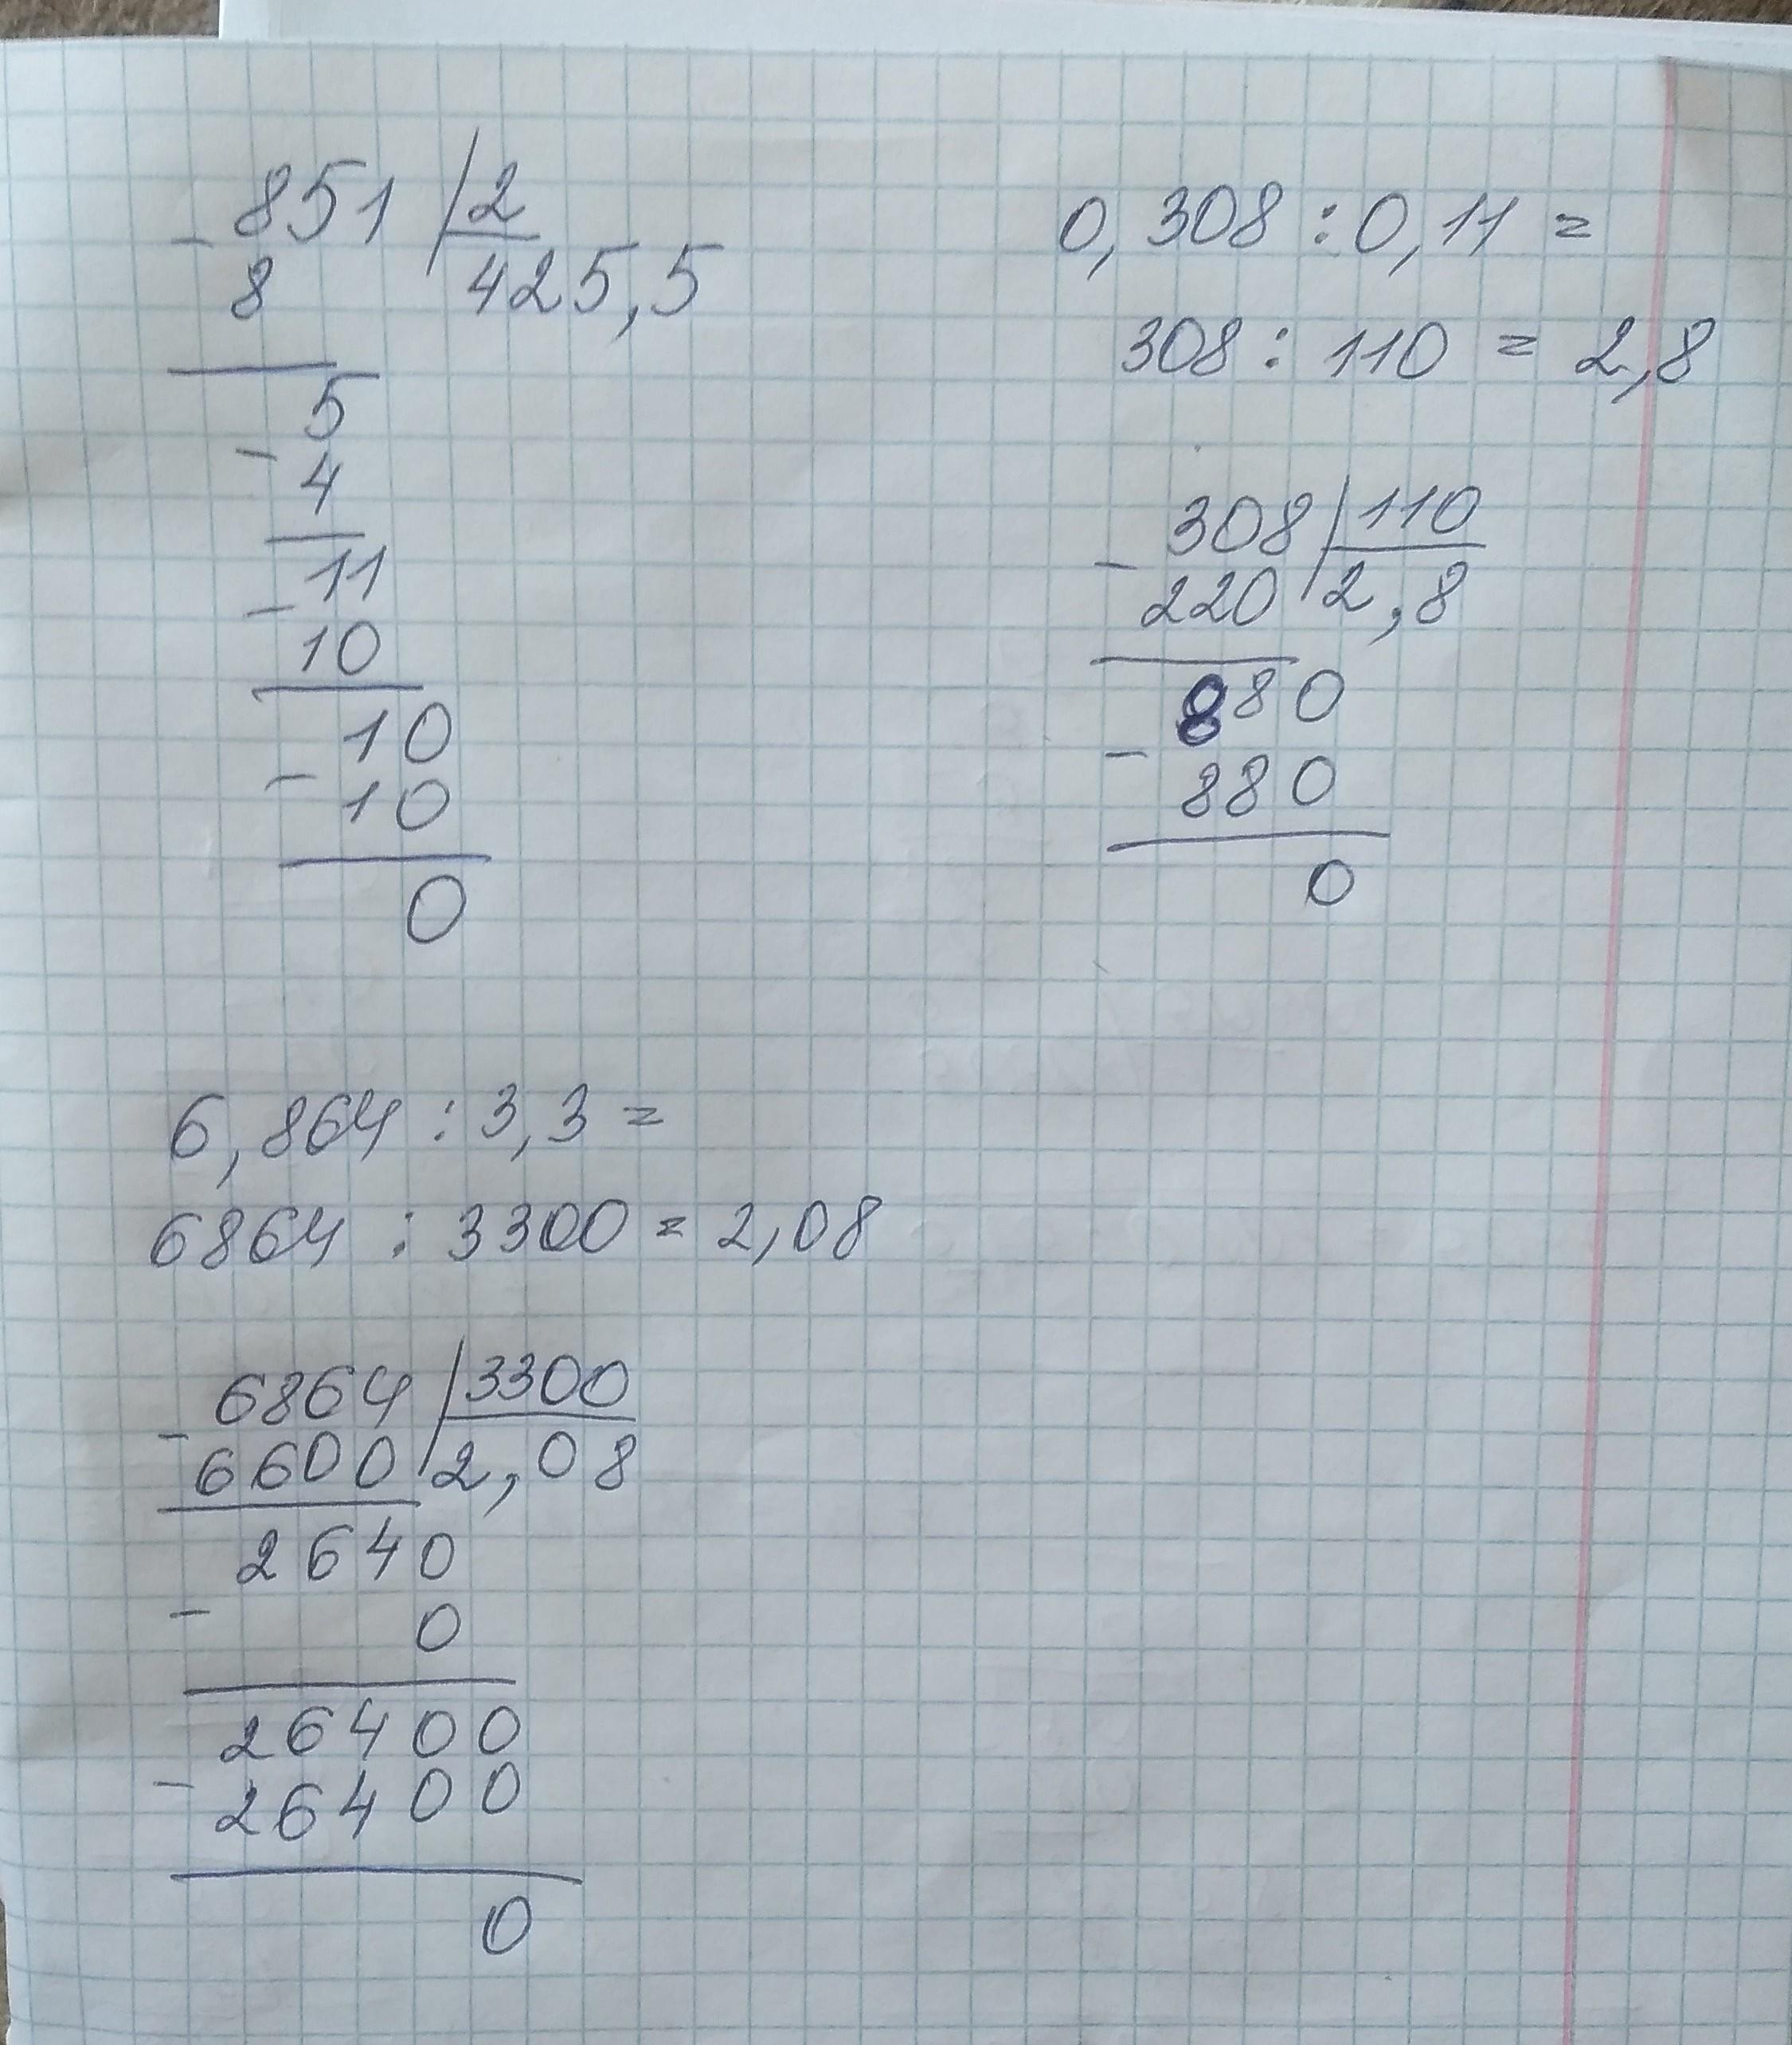 - 851 | 2
8 425,5
5
- 4
11
- 10
10
- 10
0
0,308 : 0,11 =
308 : 110 = 2,8
- 308 | 110
220 2,8
880
- 880
0
6,864 : 3,3 =
6864 : 3300 = 2,08
- 6864 | 3300
6600 2,08
2640
- 0
26400
- 26400
0